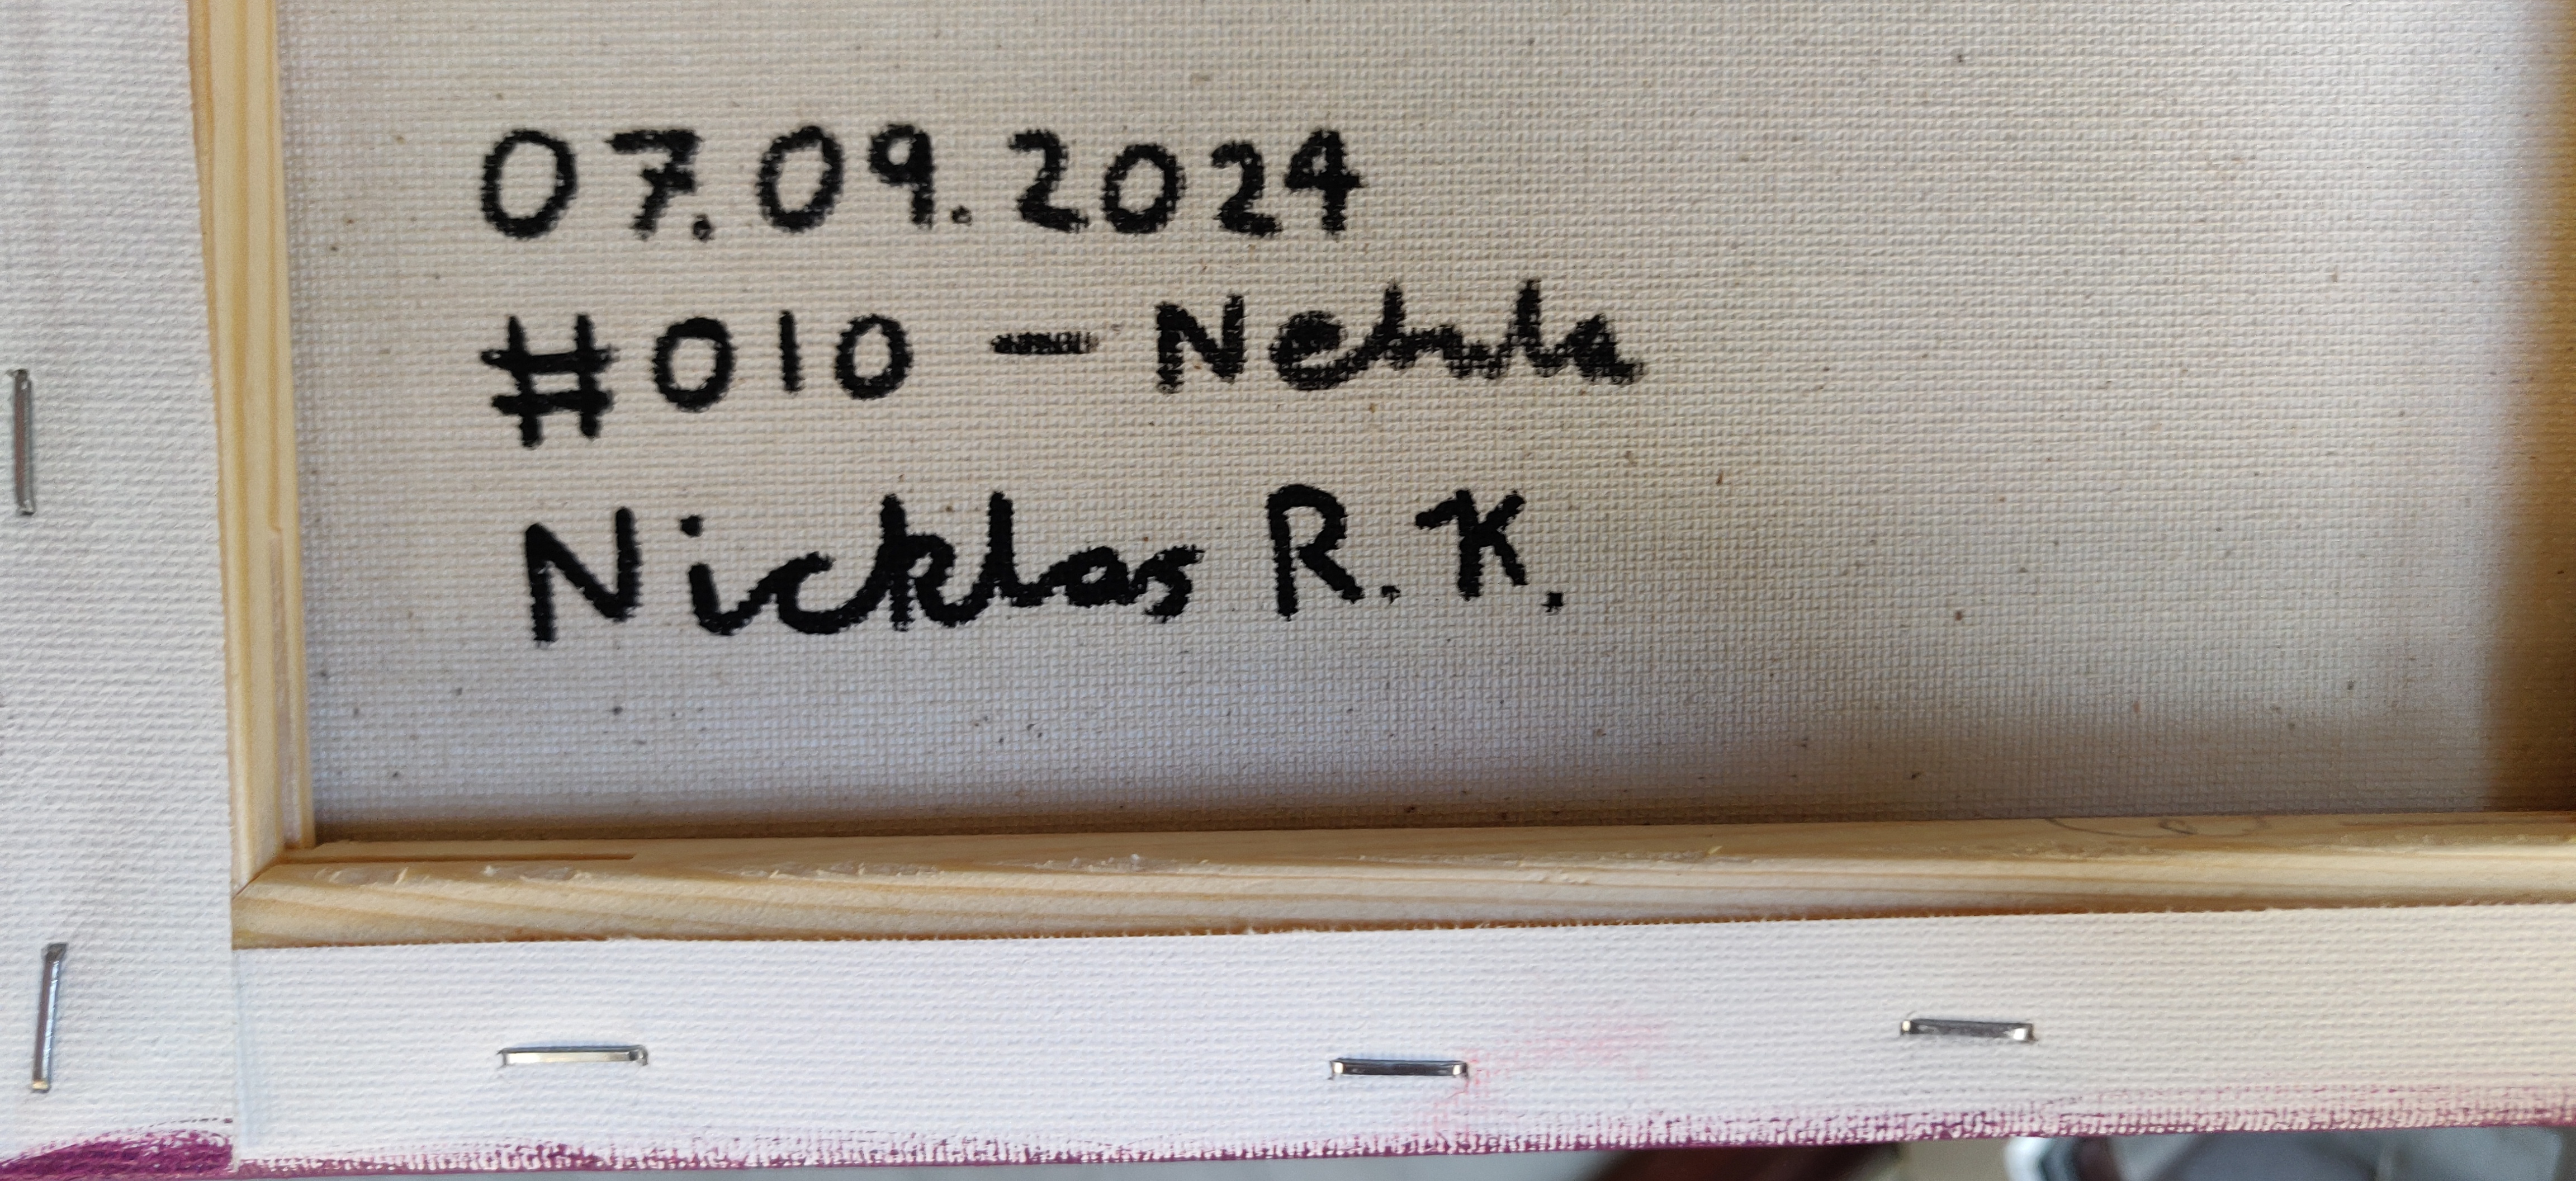 07.09.2024
#010 - Nebula
Nicklas R. K.